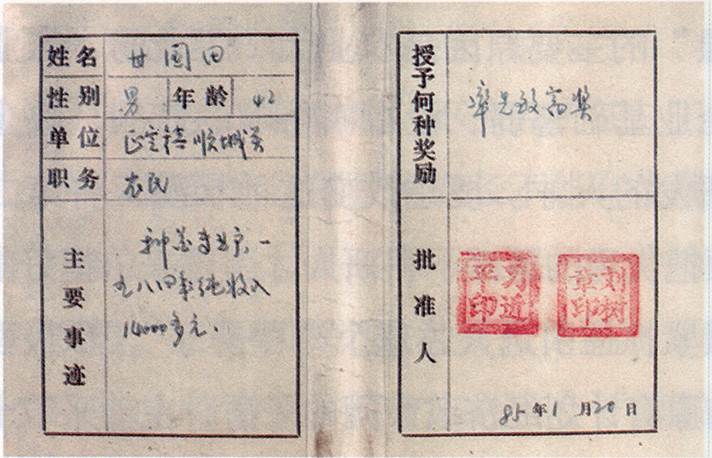 姓名 甘国田
性别 男 年龄 42
单位 正定镇顺城关
职务 农民
主要事迹
种花专业户,一
九八四年纯收入
14000多元.
授予何种奖励
率先致富奖
批准人
习近平印
刘树章印
85年1月20日